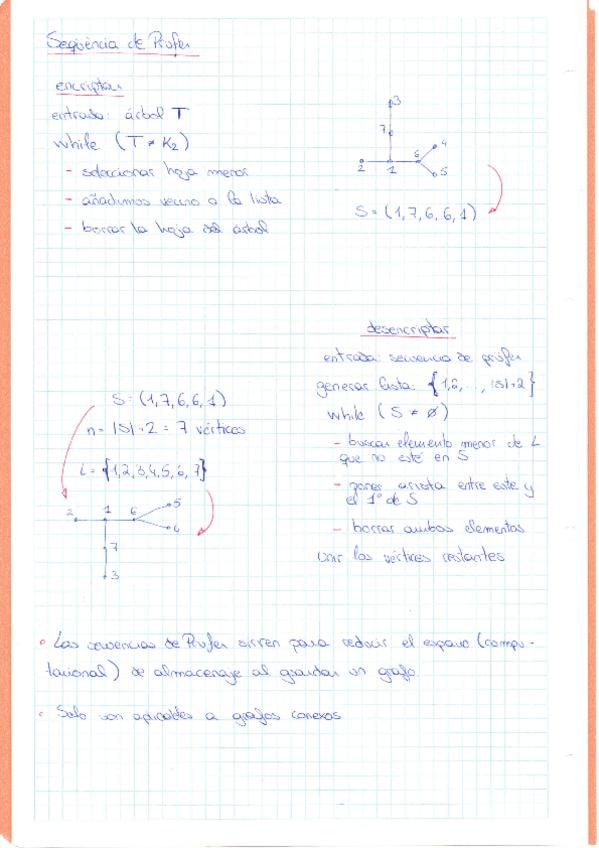 Seqüència de Prüfer
encriptar
entrada: árbol T
while (T ≠ K₂)
- seleccionar hoja menor
- añadimos vecino a la lista
- borrar la hoja del árbol
3
7
2 1 6 4
5
S = (1,7,6,6,1)
desencriptar
entrada: secuencia de prüfer
generar lista: {1,2,..., |S|+2}
while (S ≠ ø)
- buscar elemento menor de L
que no esté en S
- poner arista entre este y
el 1º de S
- borrar ambos elementos
unir los vértices restantes
S = (1,7,6,6,1)
n = |S|+2 = 7 vértices
L = {1,2,3,4,5,6,7}
2 1 6 5
7
3
• Las secuencias de Prufer sirven para reducir el espacio (compu-
tacional) de almacenaje al guardar un grafo.
• Solo son aplicables a grafos conexos